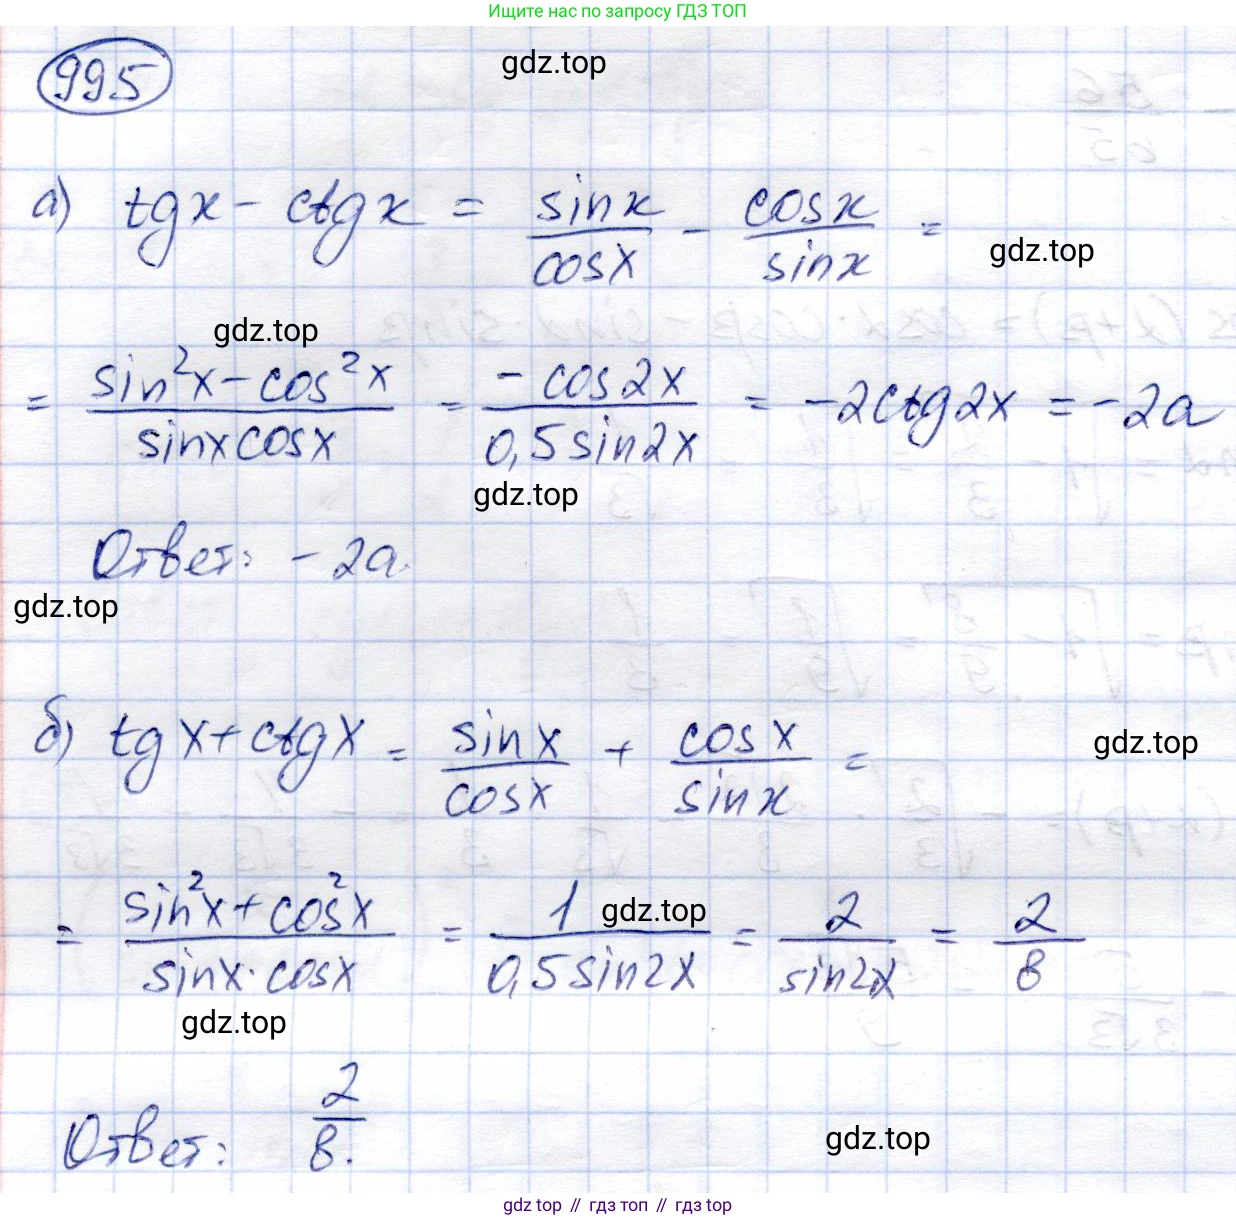 Ищите нас по запросу ГДЗ ТОП
995
gdz.top
а) tgx - ctgx = sinx/cosx - cosx/sinx =
gdz.top
gdz.top
= (sin²x - cos²x)/(sinxcosx) = (-cos2x)/(0,5sin2x) = -2ctg2x = -2a
gdz.top
Ответ: -2a.
gdz.top
б) tgx + ctgx = sinx/cosx + cosx/sinx =
gdz.top
= (sin²x + cos²x)/(sinx·cosx) = 1/(0,5sin2x) = 2/sin2x = 2/в
gdz.top
gdz.top
Ответ: 2/в.
gdz.top
gdz top // гдз топ // гдз top